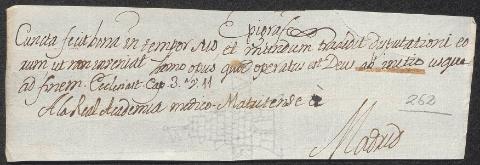 Epigrafe
Cuncta fecit bona in tempore suo et mundum tradidit disputationi eo
rum ut non inveniat homo opus quod operatus est Deus ab initio usque
ad finem. Eclesiast. Cap. 3. v. 11
A la Real Academia medico-Matritense
262
Madrid